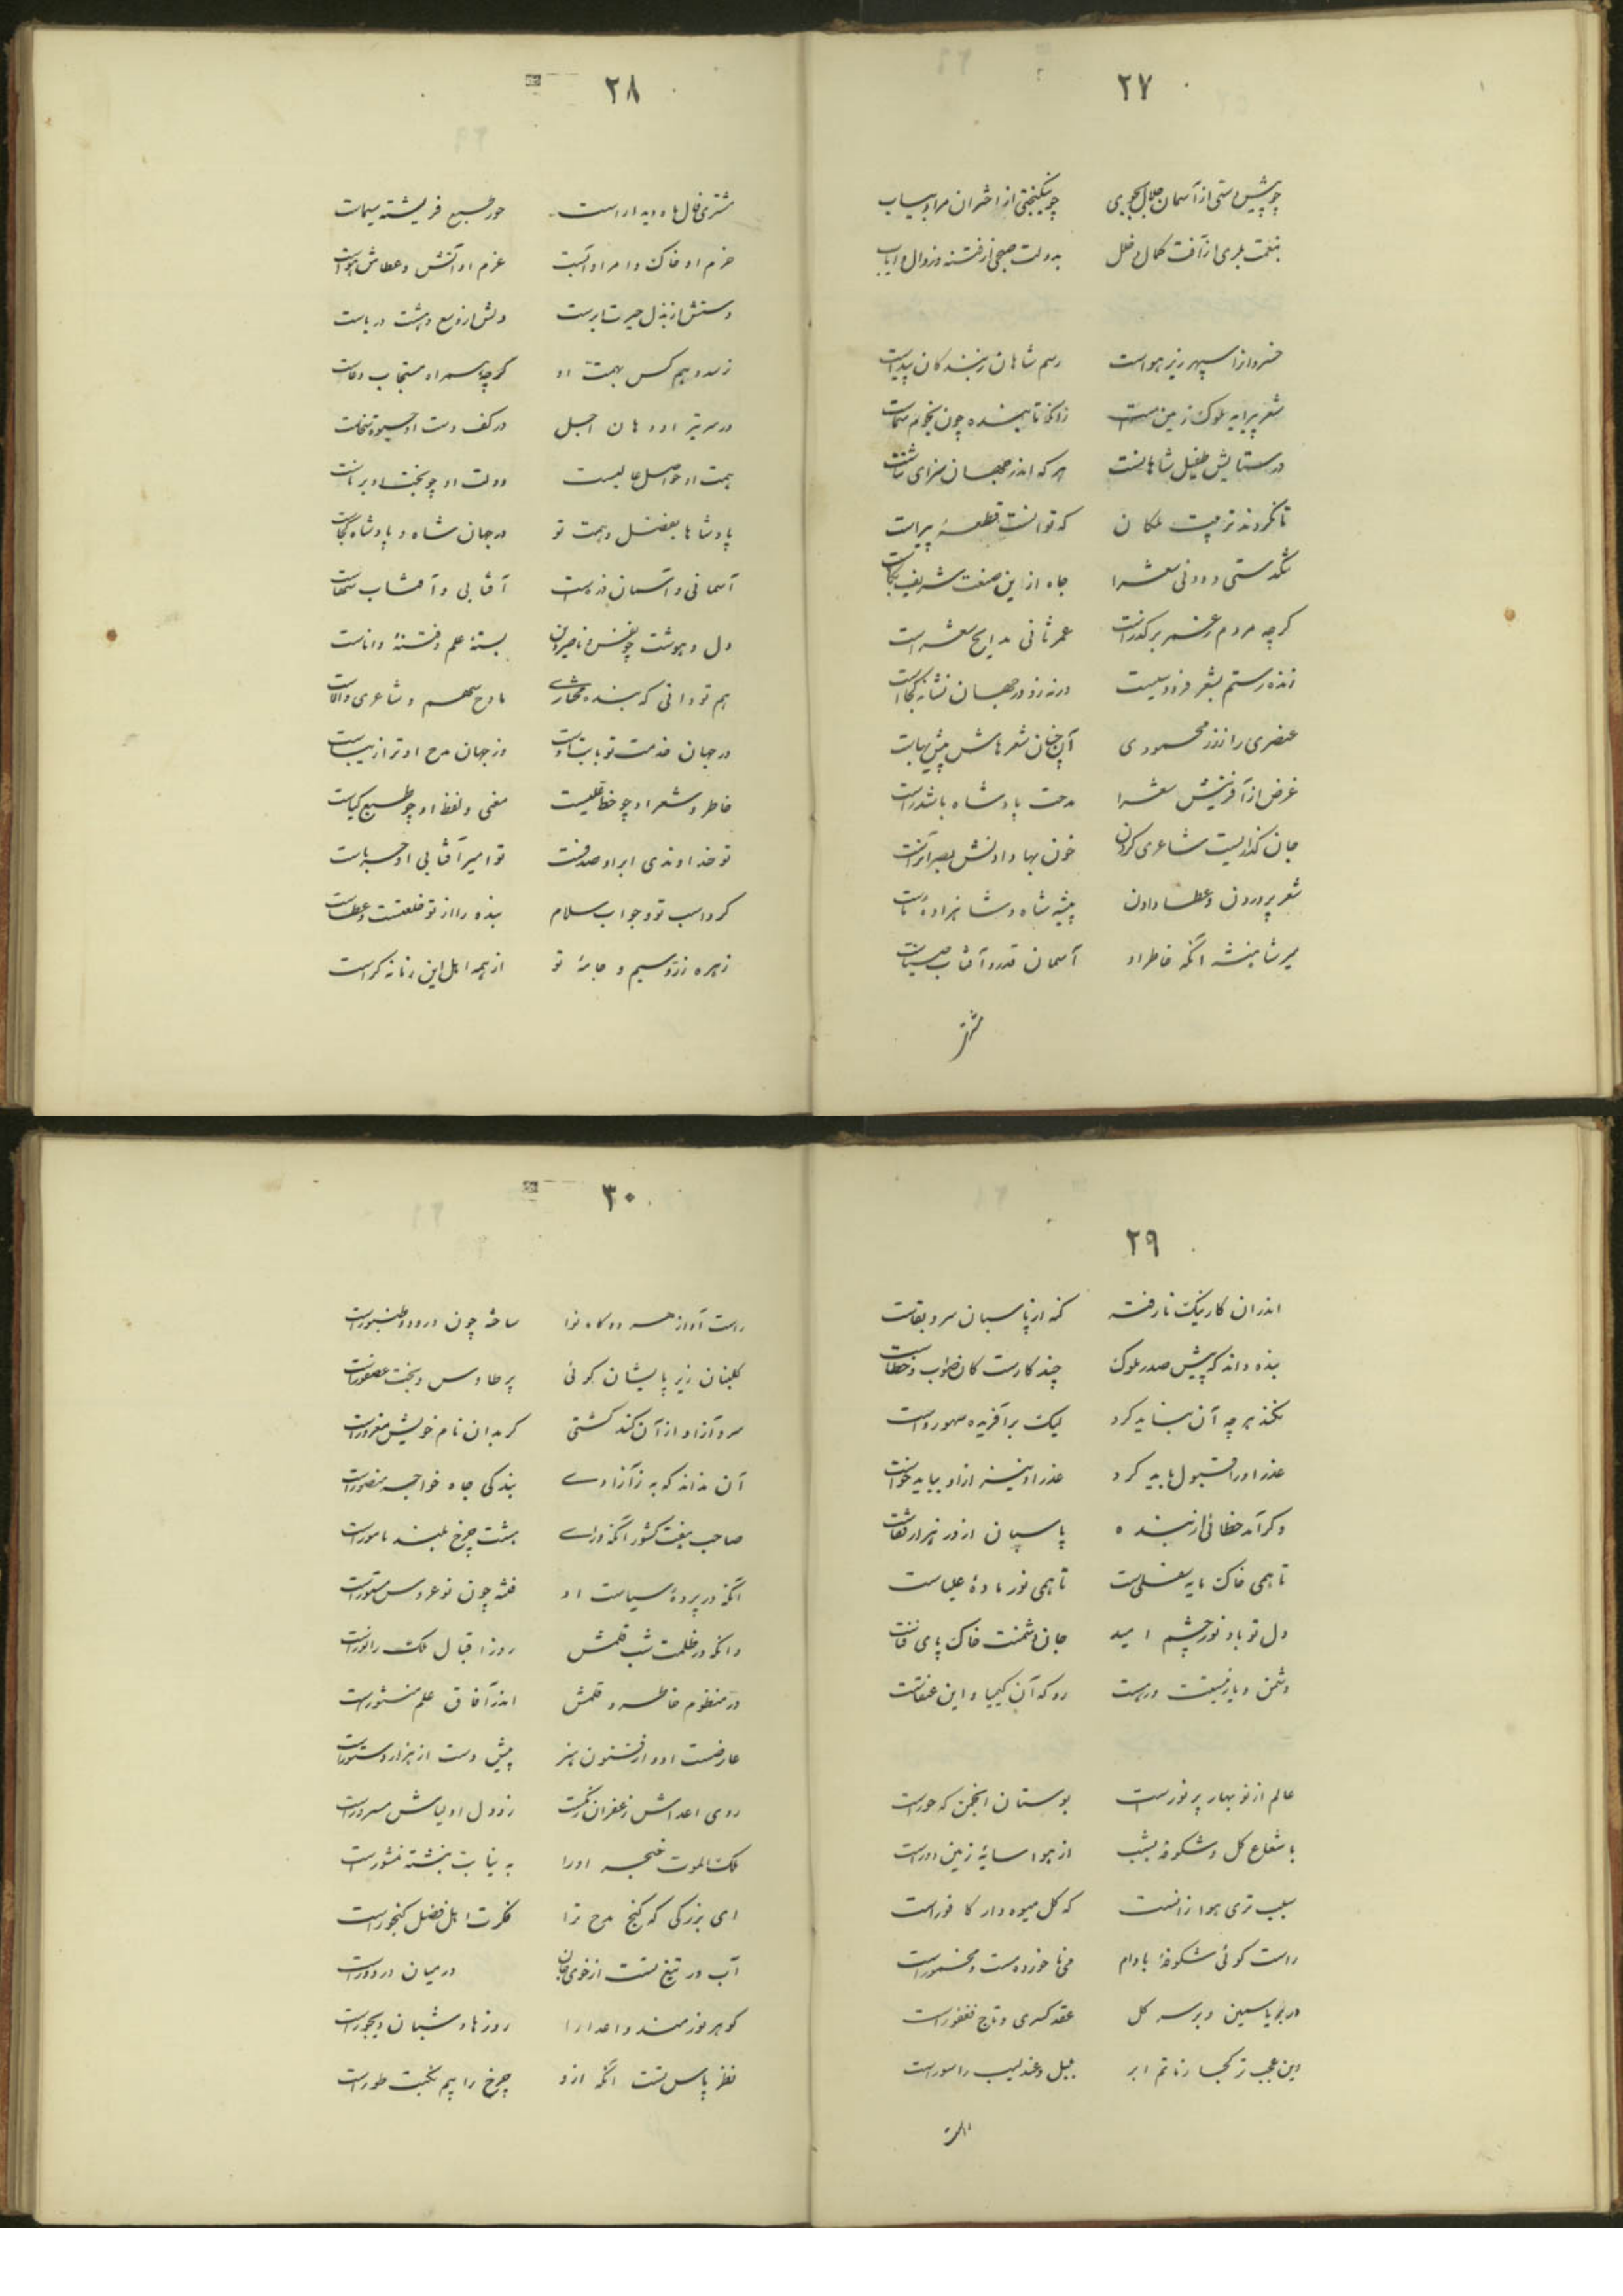 ۲۷
چو پیش دستی از آسمان جلال بجوی چو نیکبختی از اختران مراد بیاب
بنعمت بری از آفت کمال و خلل بدولت صبحی از فتنه و زوال و
خسروا زا سپهر زیر هواست رسم شاهان زبندگان پیداست
شعر پیرایه ملوک زمین است زانکه تابنده چون نجوم سماست
در ستایش طفیل شاهانست هر که اندر جهان سزای ثناست
تا نکردند تربیت ملکان که توانست قطعهٔ پیراست
تنگدستی و دونی شعرا جاه از این صنعت شریف بکاست
گرچه مردم ز عنصر برگذراست عمر ثانی مدایح شعراست
زنده رستم بشعر فردوسیست ورنه زو در جهان نشانه کجاست
عنصری را ز زر محمودی آن چنان شعرهاش بیش بهاست
غرض از آفرینش شعرا مدحت پادشاه باشد راست
جان گدازیست شاعری کردن خون بها دادنش بصر
شعر پروردن و عطا دادن پیشه شاه و شاهزاده ماست
میر شاهنشه آنکه خاطر او آسمان قدر و آفتاب
مشتر
۲۸
مشتری فال ماه دیدار است حور طبع فریشته سیماست
حزم او خاک و امر او آبست عزم او آتش و عطاش هواست
دستش از بذل حیرت ابر است دلش از وسع دهشت دریاست
نرسد وهم کس بهمت او گرچه همراه مستجاب دعاست
در سر تیر او دهان اجل در کف دست او
همت او اصل عالیست دولت او چو بخت او برناست
پادشاها بفضل و همت تو در جهان شاه و پادشاه کجاست
آسمانی و آسمان آفتابی و آفتاب سخاست
دل و هوشت چو بسته علم و فتنهٔ داناست
هم تو دانی که بنده مختاری مادح سهم و شاعری والاست
در جهان خدمت تو وز جهان مدح او ترا زیباست
خاطر و شعر او چو معنی و لفظ او چو طبع کیاست
تو خداوندی او را صدفست تو امیر آفتابی او حرباست
کر د اسب تو و جواب سلام بنده را از تو خلعتست و عطاست
زهره زر و سیم و جامهٔ تو از همه اهل این زمانه کراست
۲۹
اندر آن کار نیک نارفته کنه از پاسبان سرو بقاست
بنده داند که پیش صدر ملوک چند کارست کان صواب و خطاست
نکند هر چه آن نباید کرد لیک بر آفریده سهو رواست
عذر او را قبول باید کرد عذر او نیز از او بباید خواست
وگر آمد خطائی از بنده پاسبان از در هزار قفاست
تا همی خاک مایه سفلی است تا همی نور مادهٔ علیاست
دل تو باد نور چشم امید جان دشمنت خاک پای فناست
دشمن و یار نیستت درست رو که آن کیمیا و این عنقاست
عالم از نو بهار پر نور است بوستان انجمن که حور است
با شعاع گل و شکوفه بشب از هوا سایهٔ زمین دور است
سبب تری هوا زانست که گل میوه‌دار کافور است
راست گوئی شکوفهٔ بادام می ناخورده مست و مخمور است
در بر یاسمین و بر سر گل عقد کسری و تاج فغفور است
وین عجب تر کجا ز ماتم ابر بلبل و عندلیب را سور است
۳۰
راست آواز هر دو گاه نوا ساخته چون درود و طنبور است
گلبنان زیر پایشان گوئی پر طاوس و تخت عصفور است
سرو آزاد از آن کند کشی که بدان نام خویش مغرور است
آن نداند که به ز آزادی بندگی جاه خواجه منصور است
صاحب هفت کشور آنکه ورای هشت چرخ بلند مامور است
آنکه در پردهٔ سیاست او فتنه چون نو عروس مستور است
وانکه در ظلمت شب قلمش روز اقبال ملک را نور است
در منظوم خاطر و قلمش اندر آفاق علم منثور است
عارضست او و از فنون هنر پیش دست از هزار دستور است
روی اعداش زعفران رنگست زو دل اولیاش مسرور است
ملک الموت خنجر او را به نیابت نبشته منشور است
ای بزرگی که گنج مدح ترا فکرت اهل فضل گنجور است
آب در تیغ تست از خوی در میان در دور است
گوهر نورمند و اعدا را روزها و شبان دیجور است
نظر پاس تست آنکه ازو چرخ را بیم نکبت طور است